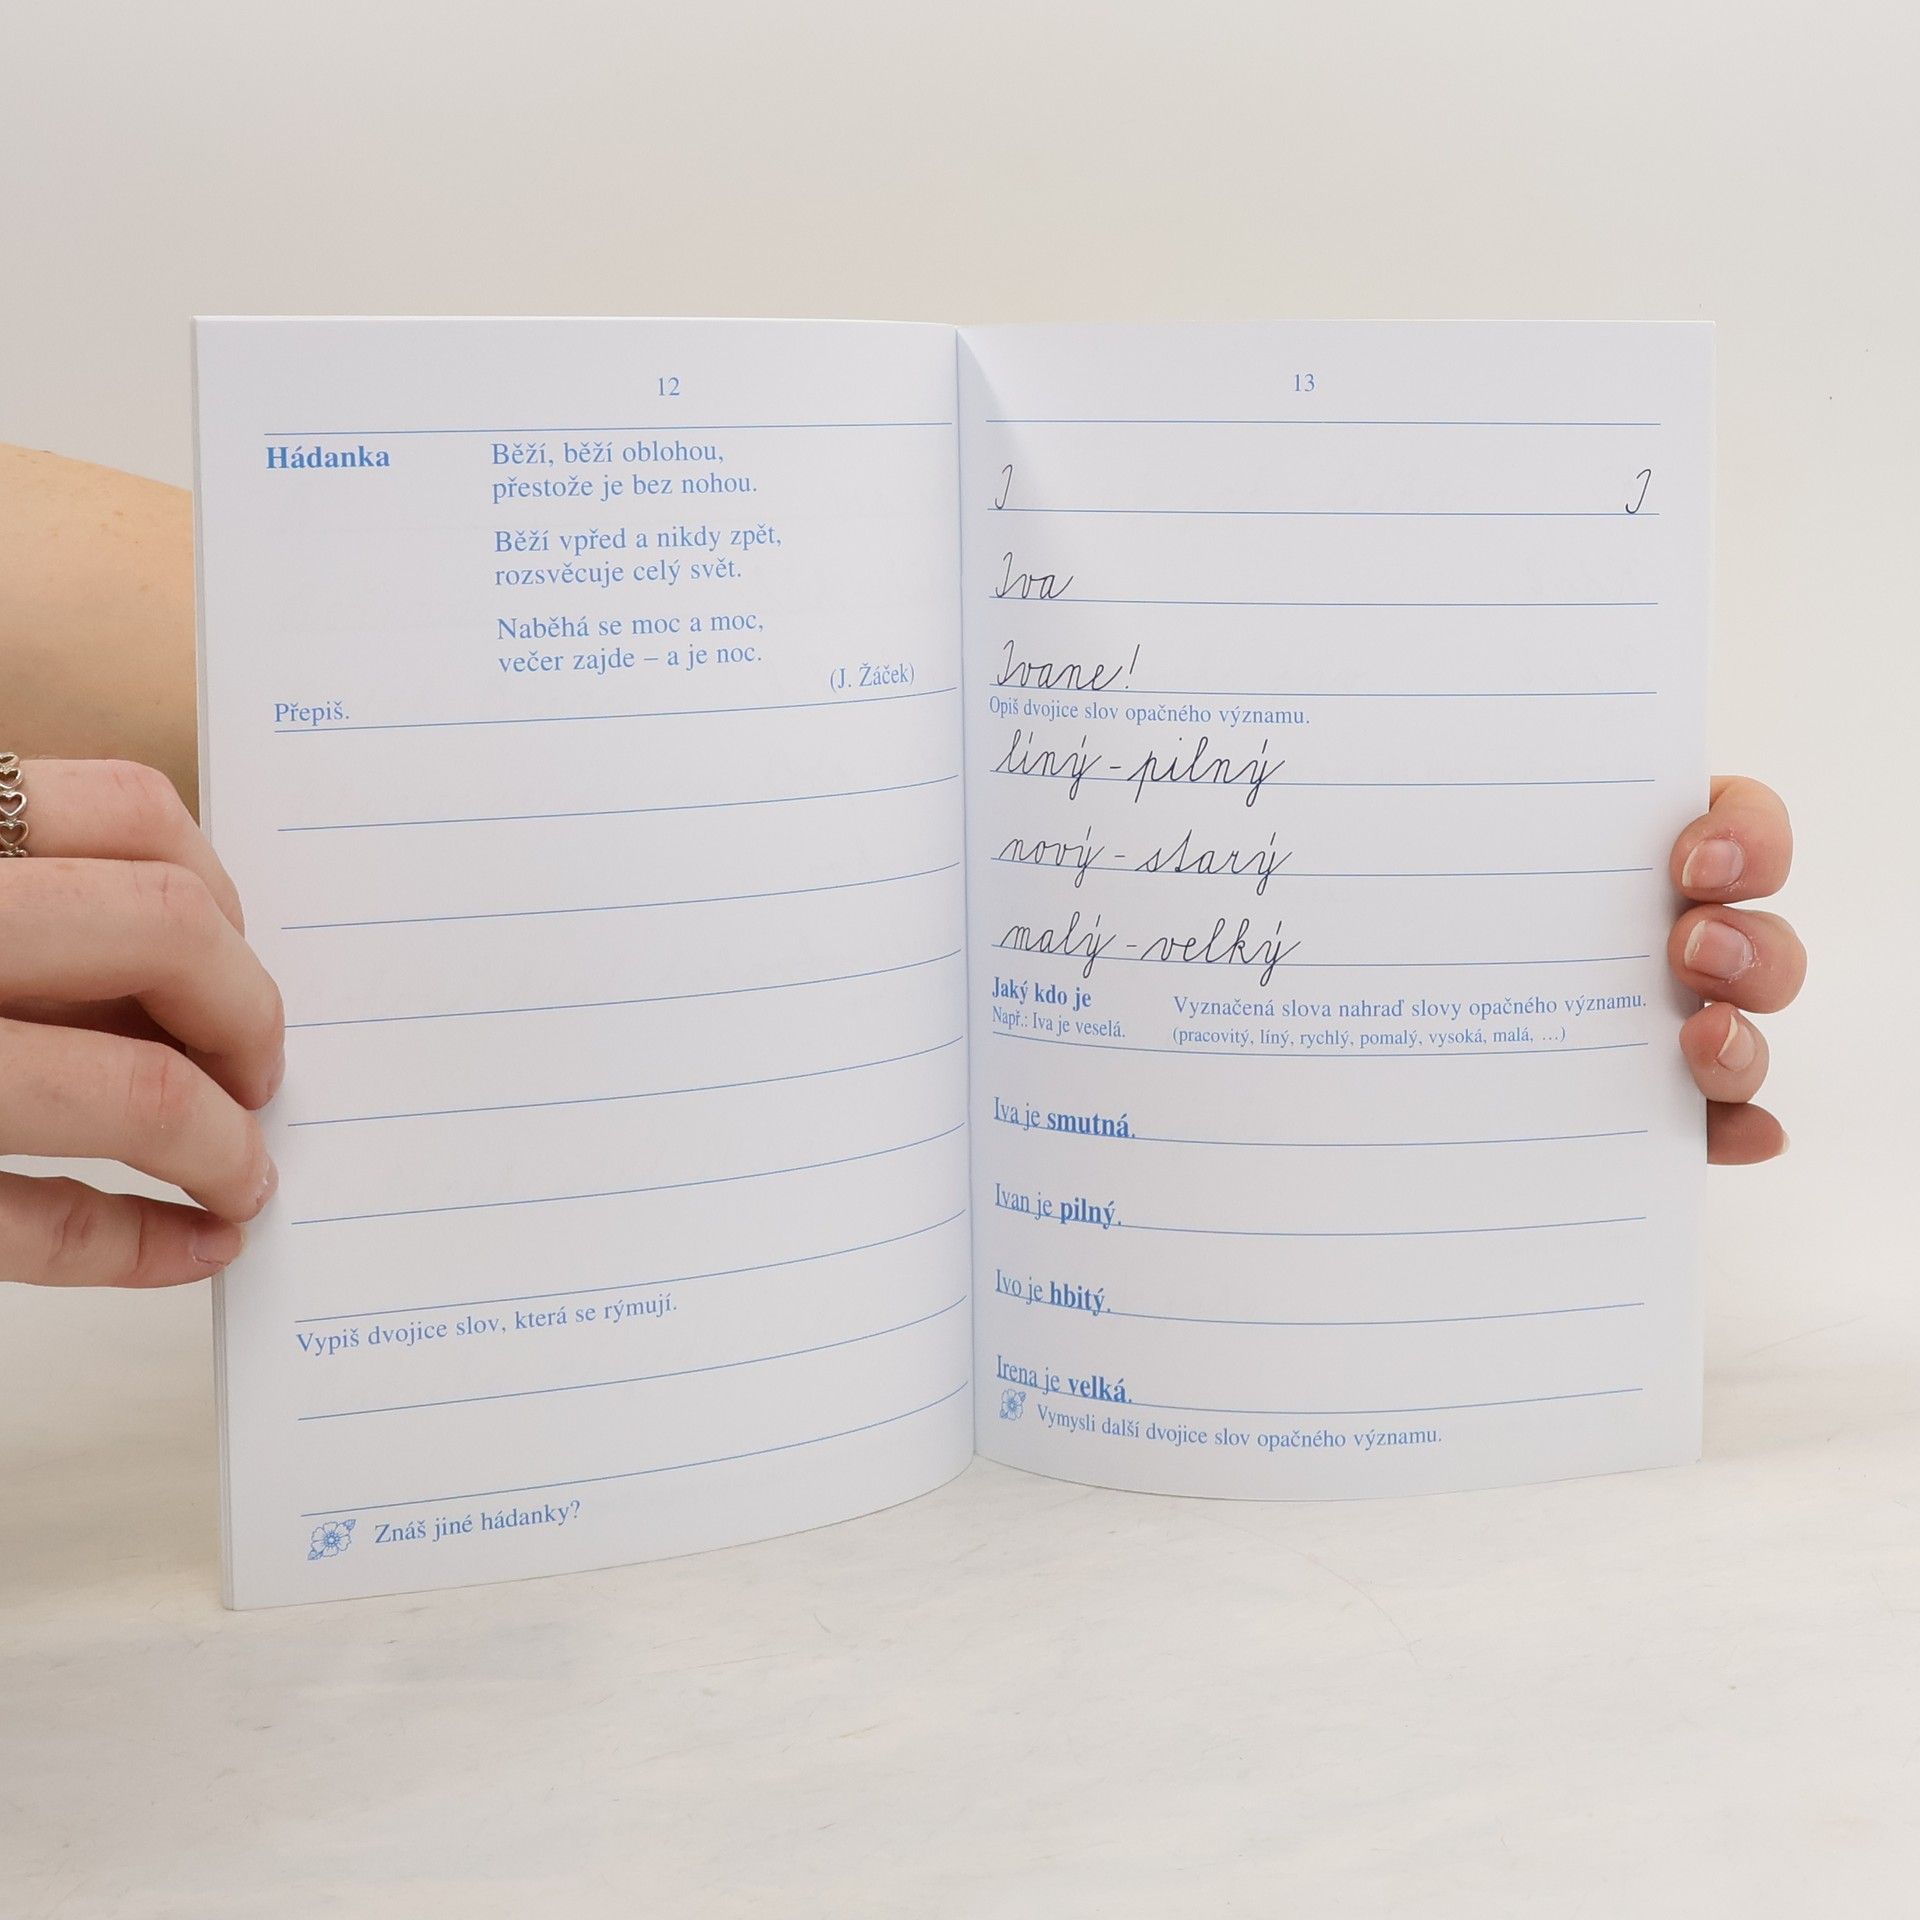 12
Hádanka
Běží, běží oblohou,
přestože je bez nohou.
Běží vpřed a nikdy zpět,
rozsvěcuje celý svět.
Naběhá se moc a moc,
večer zajde – a je noc.
(J. Žáček)
Přepiš.
Vypiš dvojice slov, která se rýmují.
Znáš jiné hádanky?
13
I I
Iva
Ivane!
Opiš dvojice slov opačného významu.
líný - pilný
nový - starý
malý - velký
Jaký kdo je
Např.: Iva je veselá.
Vyznačená slova nahraď slovy opačného významu.
(pracovitý, líný, rychlý, pomalý, vysoká, malá, …)
Iva je smutná.
Ivan je pilný.
Ivo je hbitý.
Irena je velká.
Vymysli další dvojice slov opačného významu.